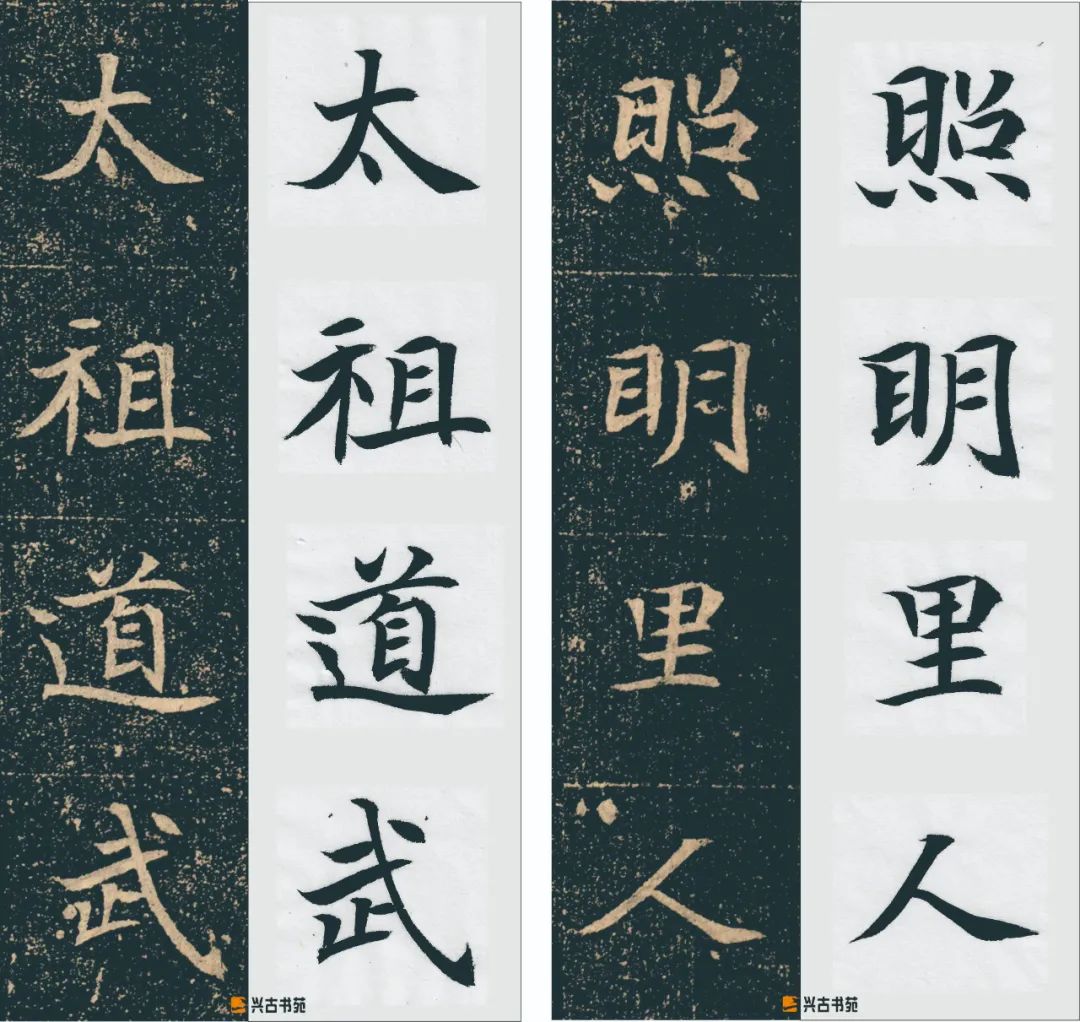 太祖道武
太祖道武
照明里人
照明里人
兴古书苑
兴古书苑